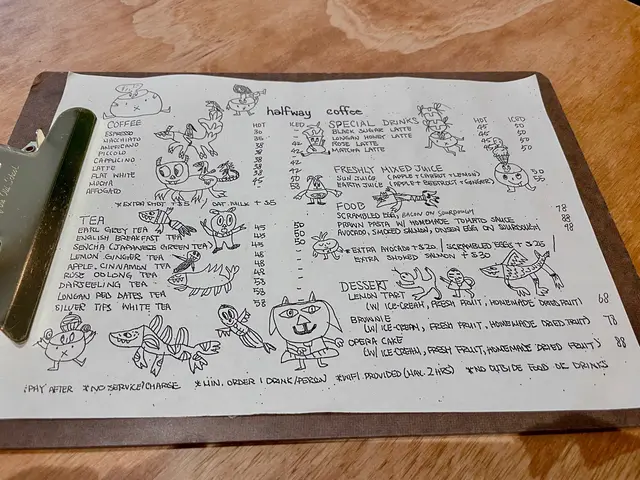 halfway coffee
COFFEE HOT ICED
ESPRESSO 30
MACCHIATO 36
AMERICANO 38
PICCOLO 38
CAPPUCCINO 38 42
LATTE 38 42
FLAT WHITE 38
MOCHA 45 50
AFFOGATO 58
*EXTRA SHOT +$5 OAT MILK +$5
TEA
EARL GREY TEA 45 50
ENGLISH BREAKFAST TEA 45 50
SENCHA (JAPANESE GREEN TEA) 45 50
LEMON GINGER TEA 48
APPLE, CINNAMON TEA 48
ROSE OOLONG TEA 48
DARJEELING TEA 58
LONGAN RED DATES TEA 58
SILVER TIPS WHITE TEA 58
SPECIAL DRINKS HOT ICED
BLACK SUGAR LATTE 45 50
LONGAN HONEY LATTE 45 50
ROSE LATTE 45 50
MATCHA LATTE 45 50
FRESHLY MIXED JUICE
SUN JUICE (APPLE+CARROT+LEMON) 50
EARTH JUICE (APPLE+BEETROOT+GINGER) 55
FOOD
SCRAMBLED EGG, BACON ON SOURDOUGH 78
PRAWN PASTA W/ HOMEMADE TOMATO SAUCE 88
AVOCADO, SMOKED SALMON, ONSEN EGG ON SOURDOUGH 98
*EXTRA AVOCADO +$20 / SCRAMBLED EGGS +$25 /
EXTRA SMOKED SALMON +$30
DESSERT
LEMON TART
(W/ ICE-CREAM, FRESH FRUIT, HOMEMADE DRIED FRUIT) 68
BROWNIE
(W/ ICE-CREAM, FRESH FRUIT, HOMEMADE DRIED FRUIT) 78
OPERA CAKE
(W/ ICE-CREAM, FRESH FRUIT, HOMEMADE DRIED FRUIT) 88
*PAY AFTER *NO SERVICE CHARGE *MIN. ORDER 1 DRINK/PERSON *WIFI PROVIDED (MAX. 2 HRS) *NO OUTSIDE FOOD OR DRINKS